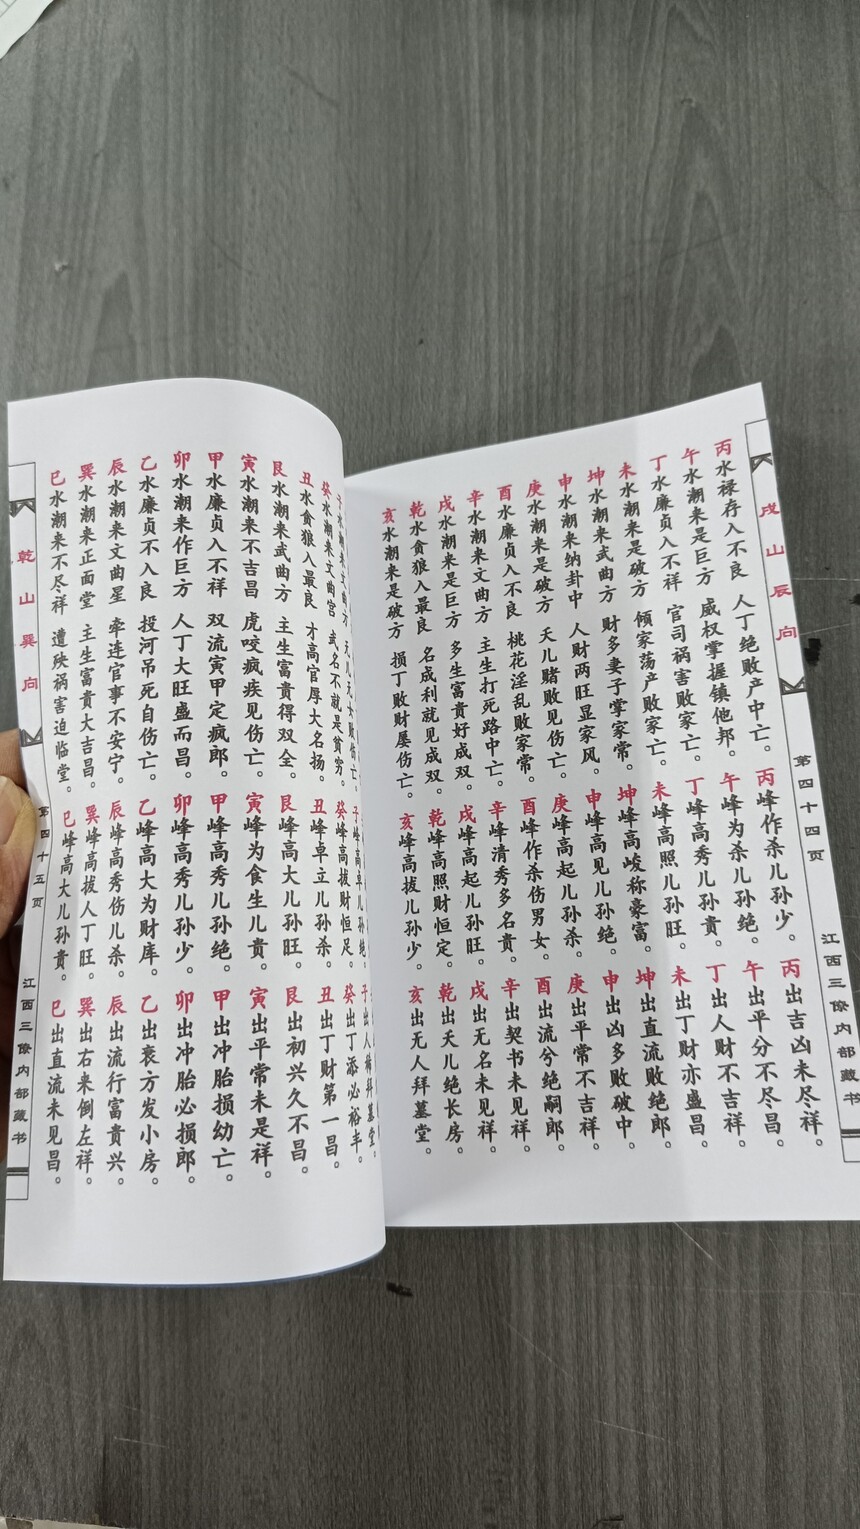 戌山辰向 第四十四页 江西三僚内部藏书
丙水禄存入不良 人丁绝败产中亡。 丙峰作杀儿孙少。 丙出吉凶未尽祥。
午水潮来是巨方 威权掌握镇他邦。 午峰为杀儿孙绝。 午出平分不尽昌。
丁水廉贞入不祥 官司祸害败家亡。 丁峰高秀儿孙贵。 丁出人财不吉祥。
未水潮来是破方 倾家荡产败家亡。 未峰高照儿孙旺。 未出丁财亦盛昌。
坤水潮来武曲方 财多妻子掌家常。 坤峰高峻称豪富。 坤出直流败绝郎。
申水潮来纳卦中 人财两旺显家风。 申峰高见儿孙绝。 申出凶多败破中。
庚水潮来是破方 天儿赌败见伤亡。 庚峰高起儿孙杀。 庚出平常不吉祥。
酉水廉贞入不良 桃花淫乱败家常。 酉峰作杀伤男女。 酉出流兮绝嗣郎。
辛水潮来文曲方 主生打死路中亡。 辛峰清秀多名贵。 辛出契书未见祥。
戌水潮来是巨方 多生富贵好成双。 戌峰高起儿孙旺。 戌出无名未见祥。
乾水贪狼入最良 名成利就见成双。 乾峰高照财恒定。 乾出天儿绝长房。
亥水潮来是破方 损丁败财屡伤亡。 亥峰高拔儿孙少。 亥出无人拜墓堂。
子水潮来文曲方 败伤亡。 子峰高卓儿孙绝。 子出人稀拜墓堂。
癸水潮来文曲宫 武名不就是贫穷。 癸峰高拔财恒足。 癸出丁添必裕丰。
丑水贪狼入最良 才高官厚大名扬。 丑峰卓立儿孙杀。 丑出丁财第一昌。
艮水潮来武曲方 主生富贵得双全。 艮峰高大儿孙旺。 艮出初兴久不昌。
寅水潮来不吉昌 虎咬疯疾见伤亡。 寅峰为食生儿贵。 寅出平常未是祥。
甲水廉贞入不祥 双流寅甲定疯郎。 甲峰高秀儿孙绝。 甲出冲胎损幼亡。
卯水潮来作巨方 人丁大旺盛而昌。 卯峰高秀儿孙少。 卯出冲胎必损郎。
乙水廉贞不入良 投河吊死自伤亡。 乙峰高大为财库。 乙出衰方发小房。
辰水潮来文曲星 牵连官事不安宁。 辰峰高秀伤儿杀。 辰出流行富贵兴。
巽水潮来正面堂 主生富贵大吉昌。 巽峰高拔人丁旺。 巽出右来倒左祥。
巳水潮来不尽祥 遭殃祸害迫临堂。 巳峰高大儿孙贵。 巳出直流未见昌。
乾山巽向 第四十五页 江西三僚内部藏书